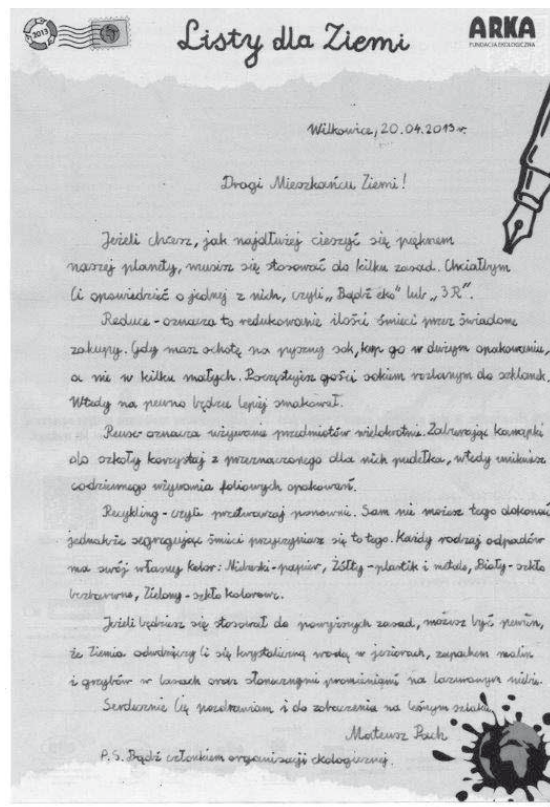 2013
Listy dla Ziemi
ARKA
FUNDACJA EKOLOGICZNA
Wilkowice, 20.04.2013r.
Drogi Mieszkańcu Ziemi!
Jeżeli chcesz, jak najdłużej cieszyć się pięknem
naszej planety, musisz się stosować do kilku zasad. Chciałbym
Ci opowiedzieć o jednej z nich, czyli „Bądź eko" lub „3R".
Reduce - oznacza to redukowanie ilości śmieci przez świadome
zakupy. Gdy masz ochotę na pyszny sok, kup go w dużym opakowaniu,
a nie w kilku małych. Poczęstujesz gości sokiem rozlanym do szklanek.
Wtedy na pewno będzie lepiej smakował.
Reuse - oznacza używanie przedmiotów wielokrotnie. Zabierając kanapki
do szkoły korzystaj z przeznaczonego dla nich pudełka, wtedy unikniesz
codziennego używania foliowych opakowań.
Recykling - czyli przetwarzaj ponownie. Sam nie możesz tego dokonać
jednakże segregując śmieci przyczyniasz się to tego. Każdy rodzaj odpadów
ma swój własny kolor: Niebieski - papier, Żółty - plastik i metale, Biały - szkło
bezbarwne, Zielony - szkło kolorowe.
Jeżeli będziesz się stosował do powyższych zasad, możesz być pewien,
że Ziemia odwdzięczy Ci się krystaliczną wodą w jeziorach, zapachem malin
i grzybów w lasach oraz słonecznymi promieniami na lazurowym niebie.
Serdecznie Cię pozdrawiam i do zobaczenia na leśnym szlaku
Mateusz Pach
P.S. Bądź członkiem organizacji ekologicznej.